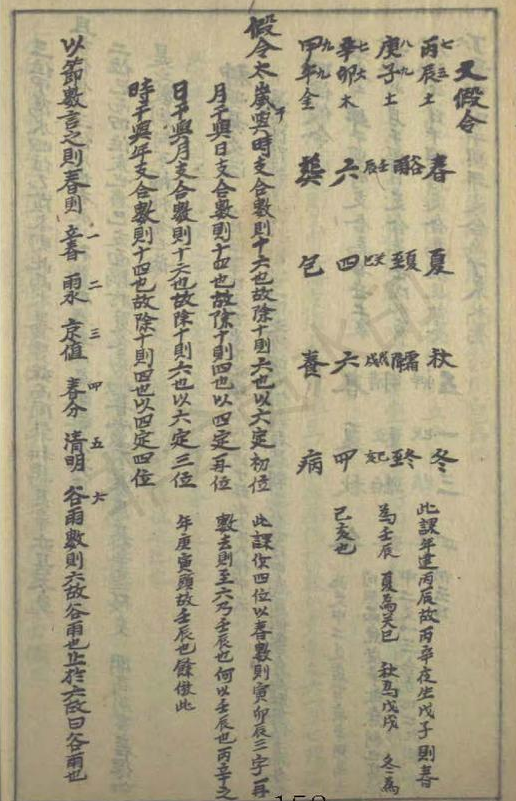 又假令
七三
丙辰土 春 夏 秋 冬
八九
庚子土 谷雨 夏至 霜降 冬至
壬辰 癸巳 戊戌 己亥
七六
辛卯木 六 四 六 四
九九
甲午金 葬 包 養 病
此課年建丙辰故丙辛夜坐戊子則春
為壬辰 夏為癸巳 秋為戊戌 冬為
己亥也
假令太歲干與時支合數則十六也故除十則六也以六定初位
月干與日支合數則十四也故除十則四也以四定再位
日干與月支合數則十六也故除十則六也以六定三位
時干與年支合數則十四也故除十則四也以四定四位
此課四位以春數則寅卯辰三字再
數去則至六乃壬辰也何以壬辰也丙辛之
年庚寅頭故壬辰也餘倣此
一 二 三 四 五 六
以節數言之則春則立春 雨水 京值 春分 清明 谷雨數則六故谷雨也止於六故曰谷雨也